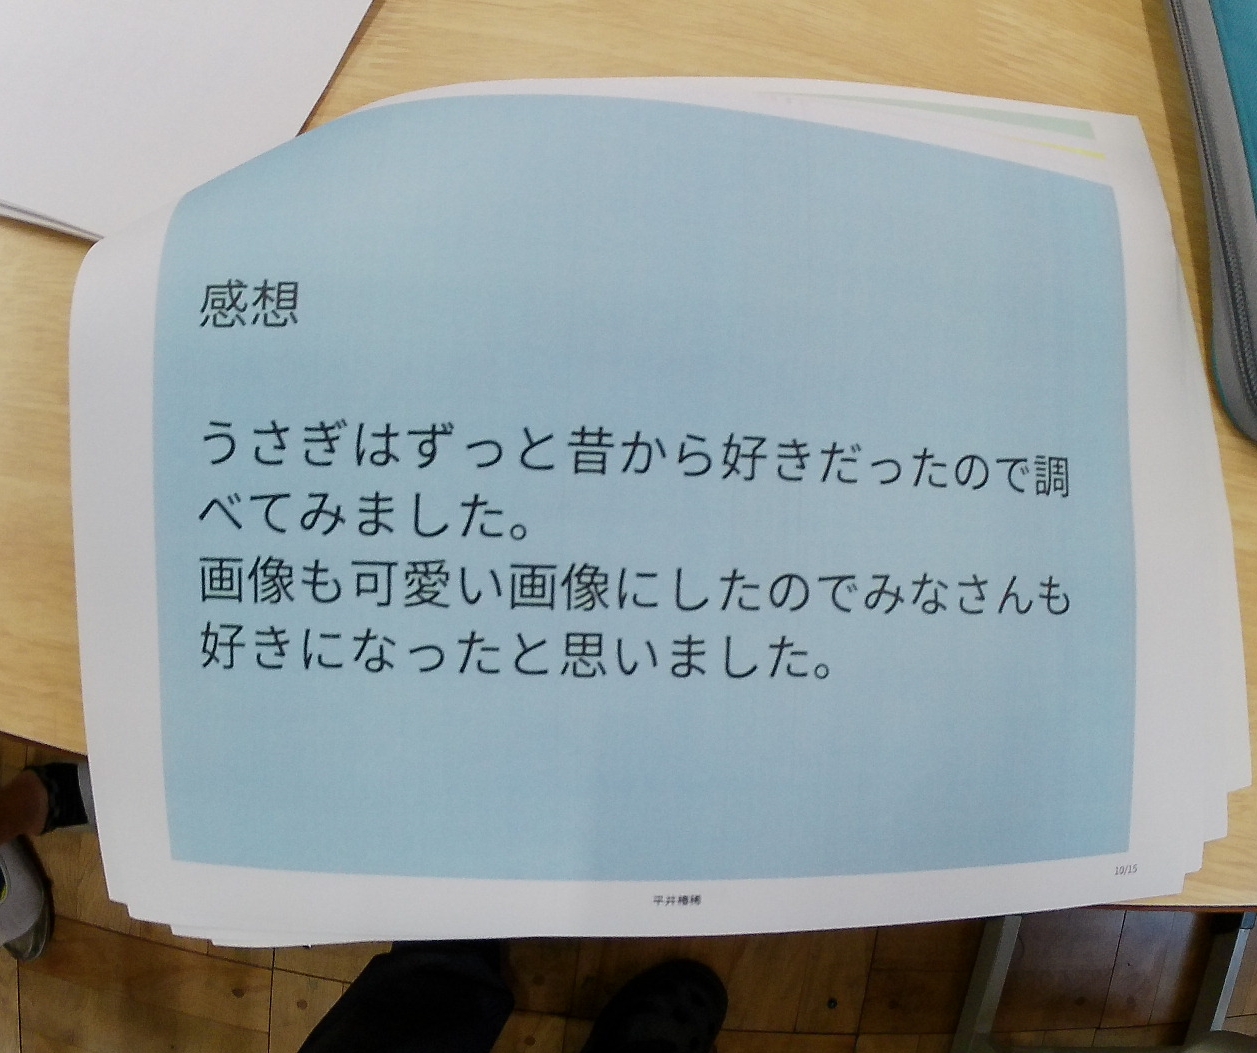 感想
うさぎはずっと昔から好きだったので調
べてみました。
画像も可愛い画像にしたのでみなさんも
好きになったと思いました。
10/15